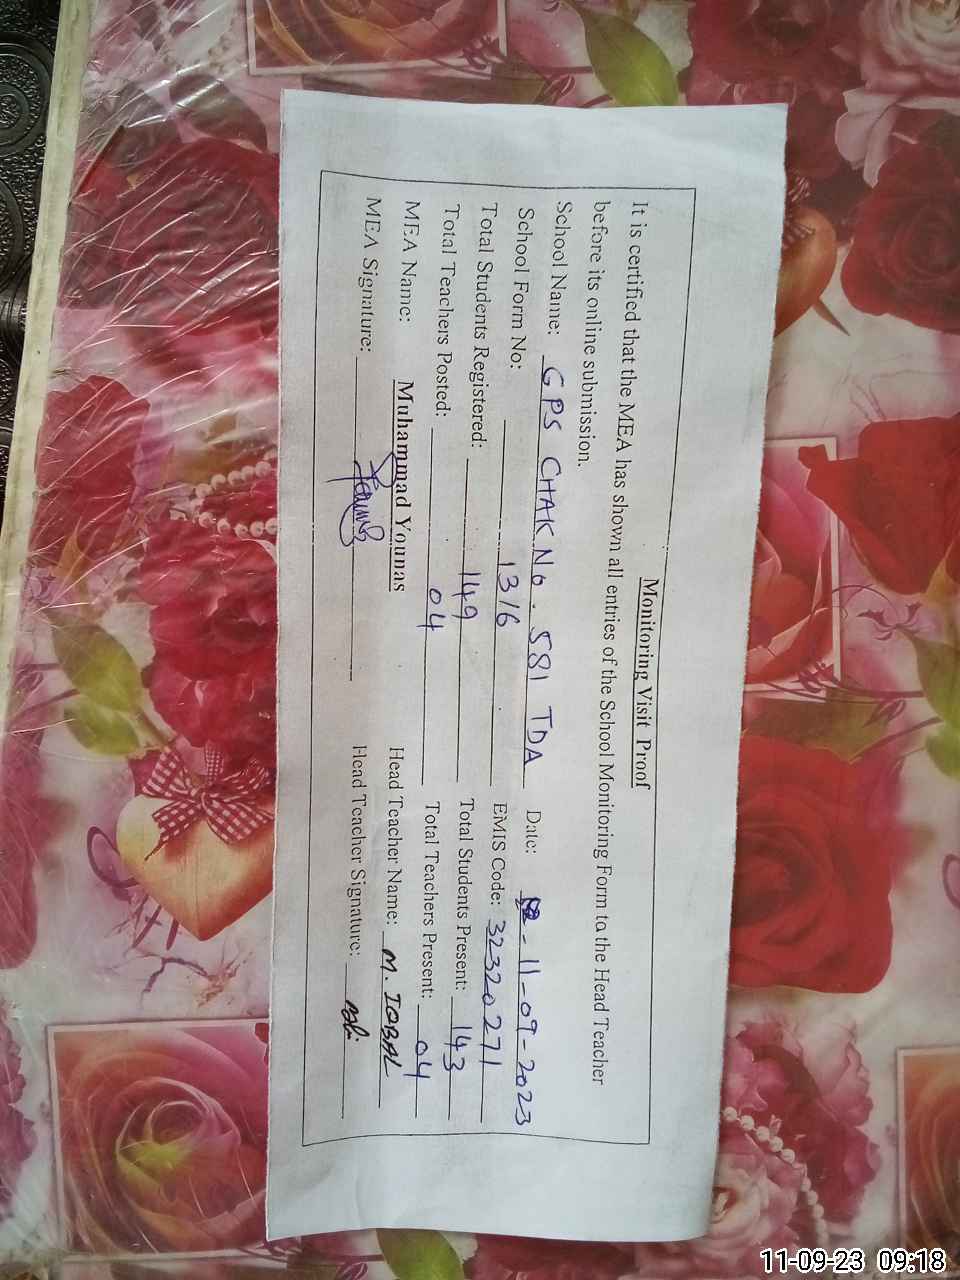 Monitoring Visit Proof
It is certified that the MEA has shown all entries of the School Monitoring Form to the Head Teacher
before its online submission.
School Name: GPS CHAK No. 581 TDA Date: 11-09-2023
School Form No: 1316 EMIS Code: 32320271
Total Students Registered: 149 Total Students Present: 143
Total Teachers Posted: 04 Total Teachers Present: 04
MEA Name: Muhammad Younas Head Teacher Name: M. IQBAL
MEA Signature: Younas Head Teacher Signature:
11-09-23 09:18